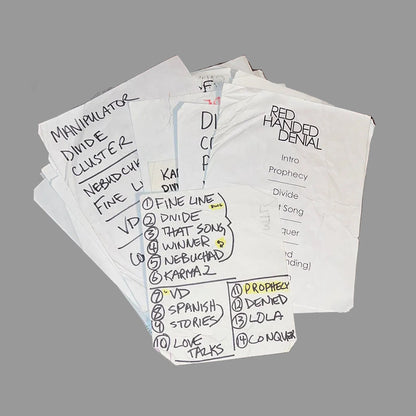 MANIPULATOR
DIVIDE
CLUSTER
NEBUDCH
FINE LI
VD
CO
F
KAR
DI
CO
RED
HANDED
DENIAL
Intro
Prophecy
Divide
t Song
quer
ed
nding)
① FINE LINE
② DIVIDE
③ THAT SONG
④ WINNER
⑤ NEBUCHAD
⑥ KARMA 2
⑦ VD
⑧ SPANISH
⑨ STORIES
⑩ LOVE
TALKS
⑪ PROPHECY
⑫ DENIED
⑬ LOLA
⑭ CONQUER